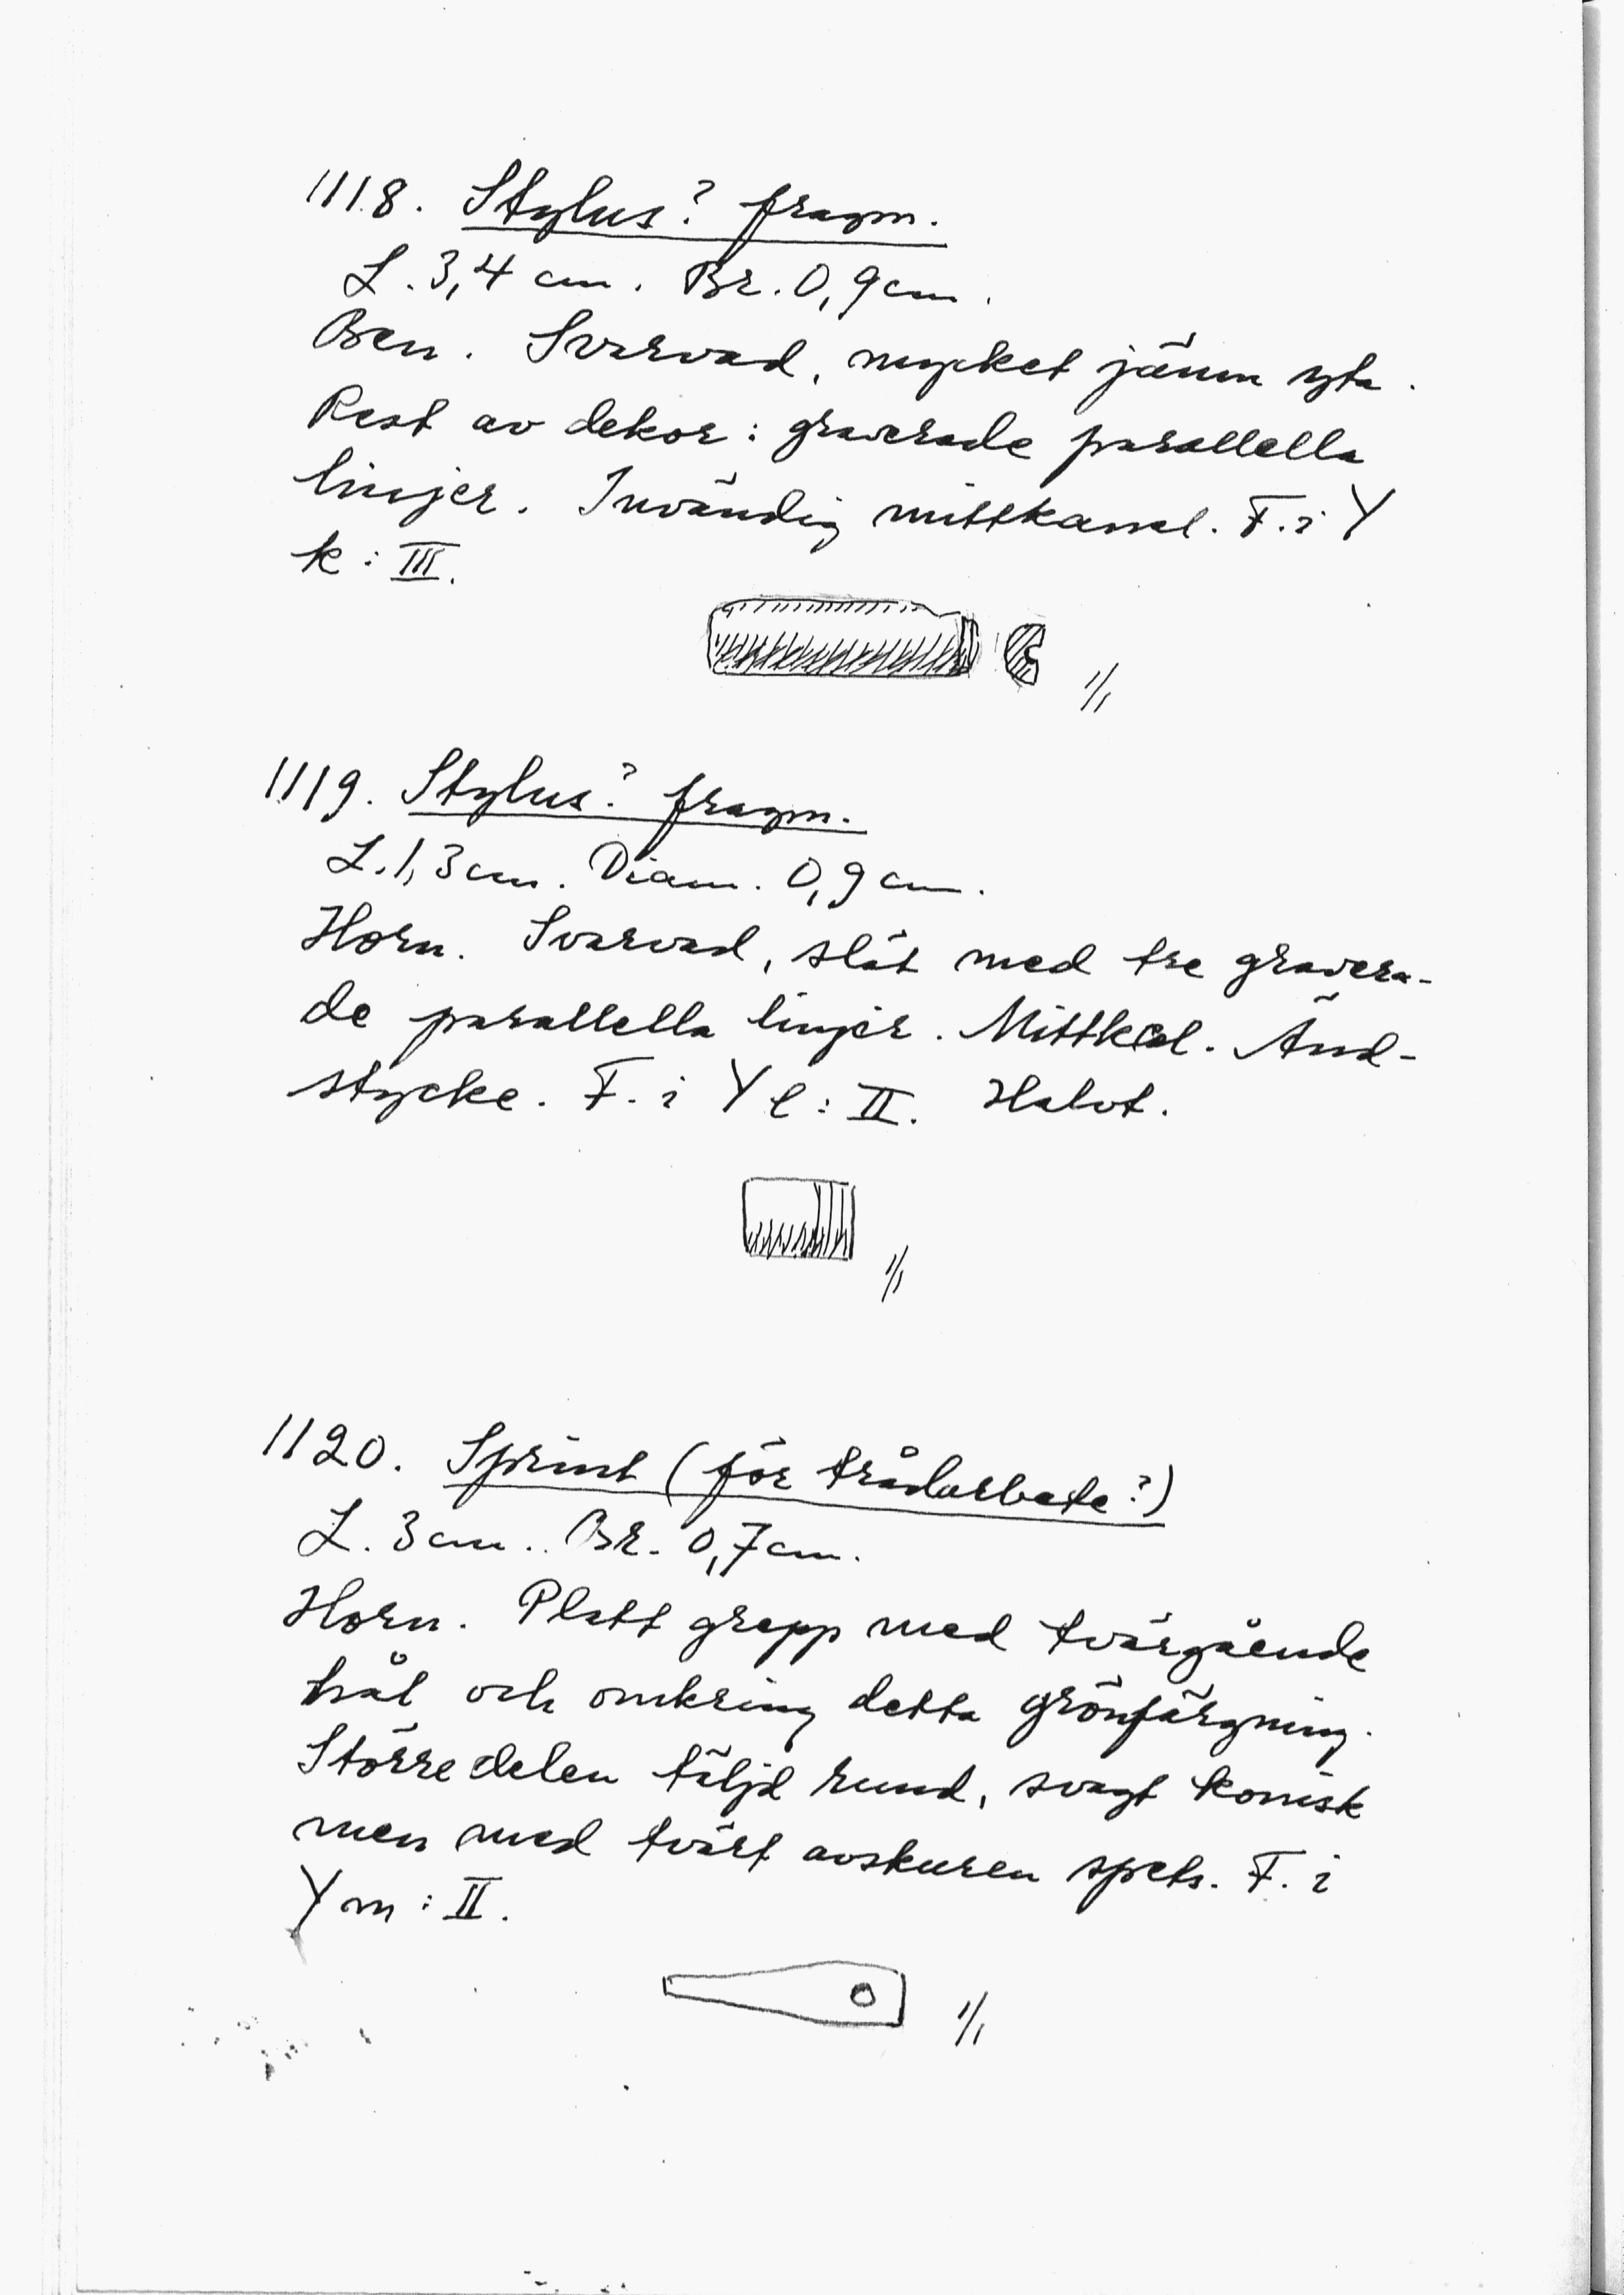 1118. Stylus? fragm.
L. 3,4 cm. Br. 0,9 cm.
Ben. Svarvad, mycket jämn yta.
Rest av dekor: graverade parallella
linjer. Invändig mittkanal. F. i Y
k: III.
1/1
1119. Stylus? fragm.
L. 1,3 cm. Diam. 0,9 cm.
Horn. Svarvad, slät med tre gravera-
de parallella linjer. Mittkal. Änd-
stycke. F. i Y l: II. Halvt.
1/1
1120. Sprint (för trådarbete?)
L. 3 cm. Br. 0,7 cm.
Horn. Platt grepp med tvärgående
hål och omkring detta grönfärgning.
Större delen täljd rund, svagt konisk
men med tvärt avskuren spets. F. i
Y m: II.
1/1